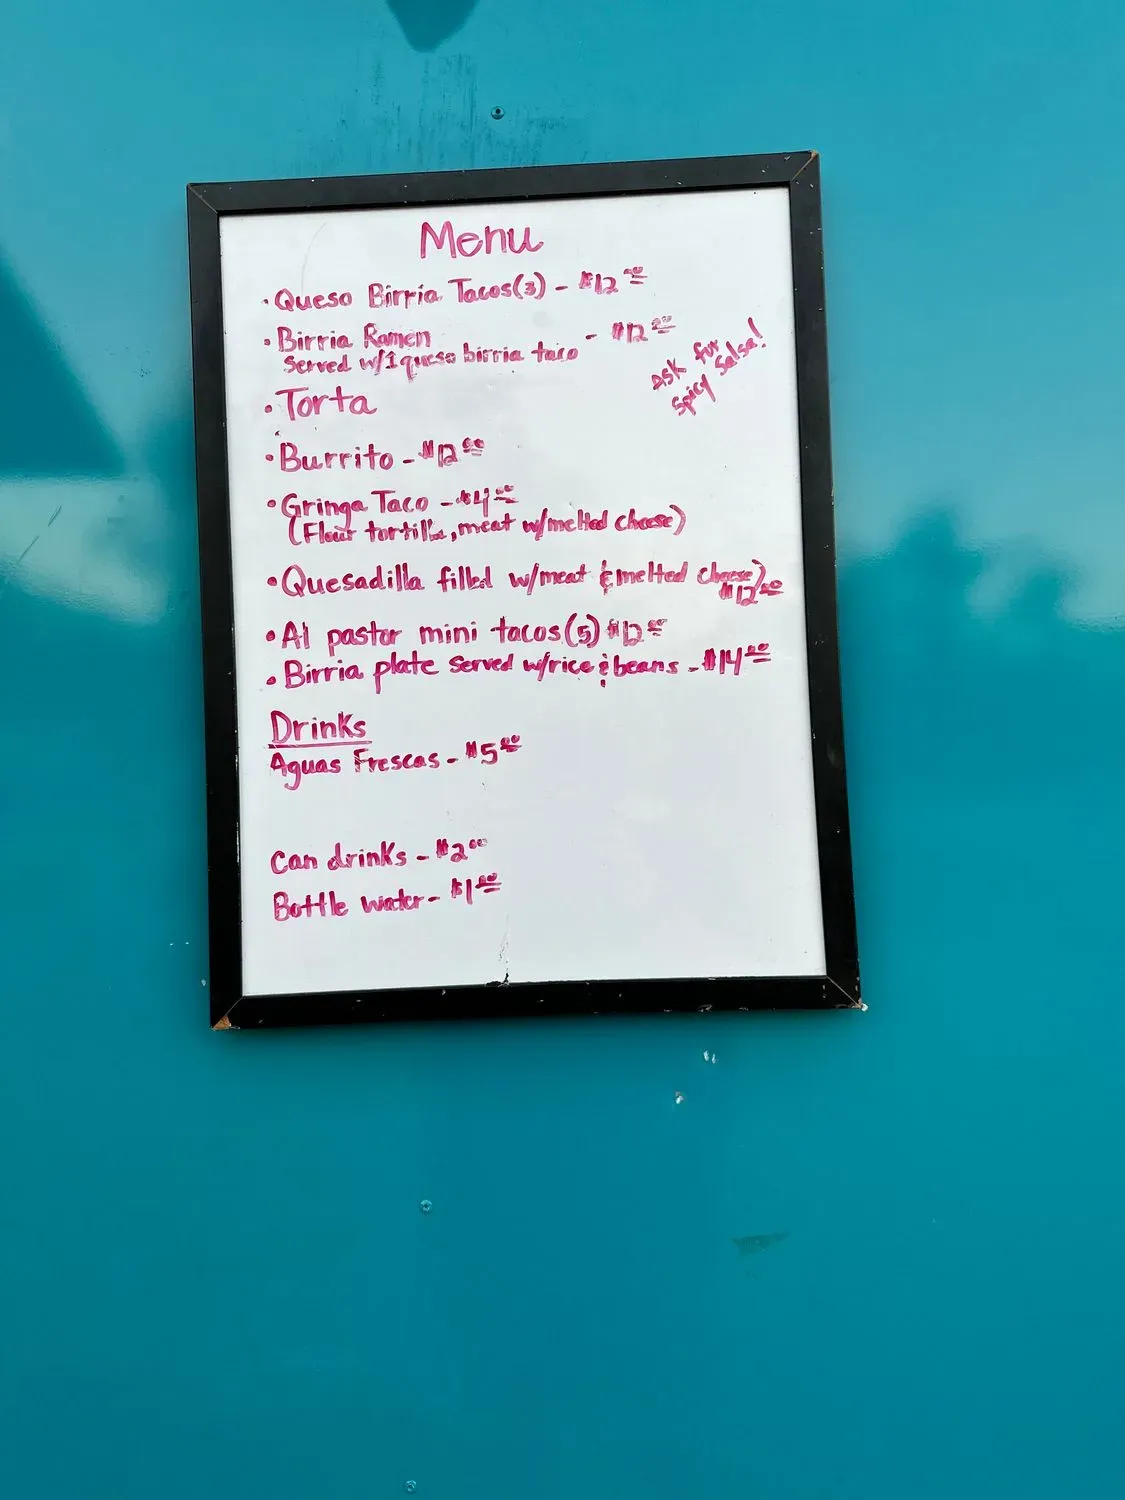 Menu
• Queso Birria Tacos(3) - $12.00
• Birria Ramen - $12.00
Served w/1 queso birria taco
Ask for
spicy salsa!
• Torta
• Burrito - $12.00
• Gringa Taco - $4.00
(Flour tortilla, meat w/melted cheese)
• Quesadilla filled w/meat & melted cheese)
$12.00
• Al pastor mini tacos(5) $12.00
• Birria plate served w/rice & beans - $14.00
Drinks
Aguas Frescas - $5.00
Can drinks - $2.00
Bottle water - $1.00